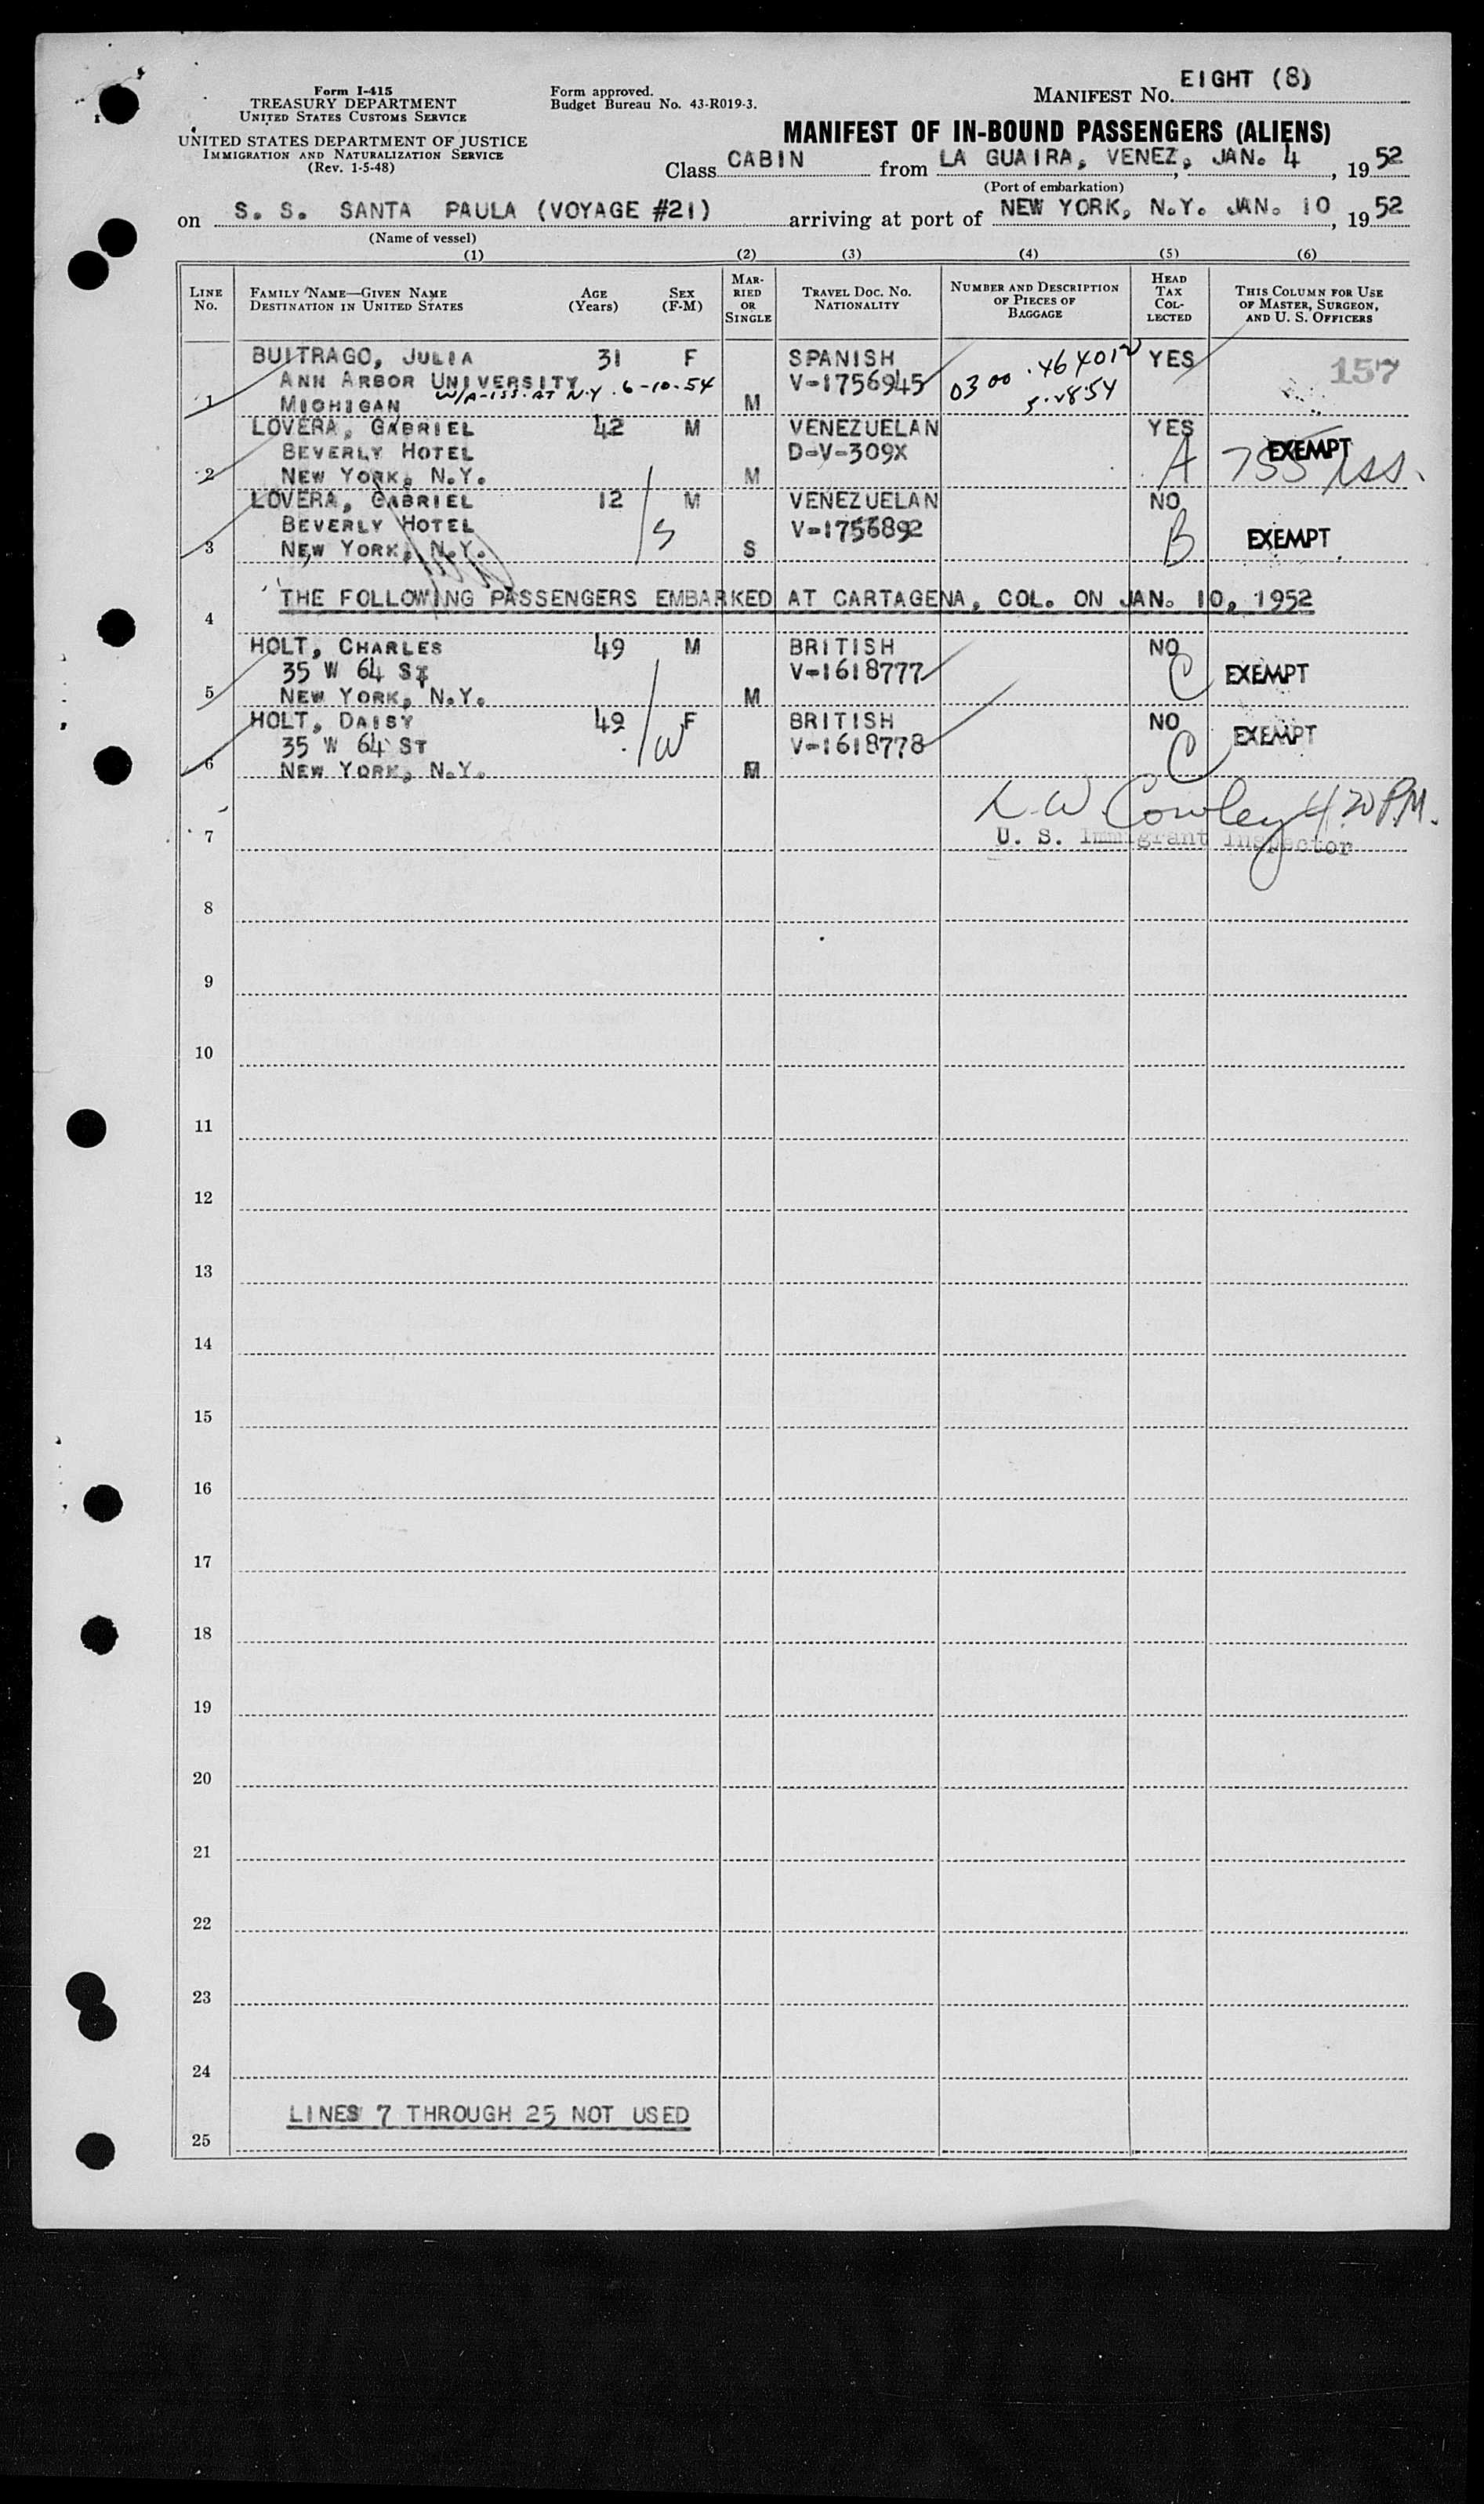 Form I-415
TREASURY DEPARTMENT
UNITED STATES CUSTOMS SERVICE
UNITED STATES DEPARTMENT OF JUSTICE
IMMIGRATION AND NATURALIZATION SERVICE
(Rev. 1-5-48)
Form approved.
Budget Bureau No. 43-R019-3.
MANIFEST NO. EIGHT (8)
MANIFEST OF IN-BOUND PASSENGERS (ALIENS)
Class CABIN from LA GUAIRA, VENEZ, JAN. 4, 1952
(Port of embarkation)
on S. S. SANTA PAULA (VOYAGE #21) arriving at port of NEW YORK, N.Y. JAN. 10, 1952
(Name of vessel)
(1) (2) (3) (4) (5) (6)
LINE NO.
FAMILY NAME—GIVEN NAME
DESTINATION IN UNITED STATES
AGE (Years)
SEX (F-M)
MARRIED OR SINGLE
TRAVEL DOC. NO.
NATIONALITY
NUMBER AND DESCRIPTION OF PIECES OF BAGGAGE
HEAD TAX COLLECTED
THIS COLUMN FOR USE OF MASTER, SURGEON, AND U. S. OFFICERS
BUITRAGO, JULIA 31 F SPANISH YES 157
ANN ARBOR UNIVERSITY V-1756945 0300 . 464012
W/A-ISS. AT N.Y. 6-10-54
1 MICHIGAN M 5-28-54
LOVERA, GABRIEL 42 M VENEZUELAN YES
BEVERLY HOTEL D-V-309X EXEMPT
2 NEW YORK, N.Y. M A 755 iss.
LOVERA, GABRIEL 12 M VENEZUELAN NO
BEVERLY HOTEL S V-1756892
3 NEW YORK, N.Y. S B EXEMPT
4 THE FOLLOWING PASSENGERS EMBARKED AT CARTAGENA, COL. ON JAN. 10, 1952
HOLT, CHARLES 49 M BRITISH NO
35 W 64 ST V-1618777 C EXEMPT
5 NEW YORK, N.Y. M
HOLT, DAISY 49 F BRITISH NO
35 W 64 ST W V-1618778 C EXEMPT
6 NEW YORK, N.Y. M
L. W. Cowley 4:20 P.M.
7 U. S. Immigrant Inspector
8
9
10
11
12
13
14
15
16
17
18
19
20
21
22
23
24
LINES 7 THROUGH 25 NOT USED
25